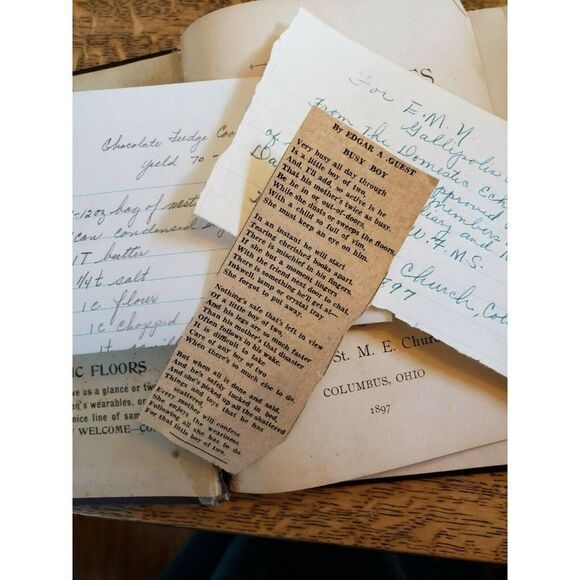 Chocolate Fudge
yield 70
12 oz bag of
can condensed
1 T butter
1/4 t salt
1 c flour
1 c chopped
For E.M.N.
Gallipolis
From The Domestic
approved
members
W.F.M.S.
Church,
By EDGAR A. GUEST
BUSY BOY
Very busy all day through
Is a little boy of two
And, I'll add, so active is he
That his mother's twice as busy.
Be he in or out-of-doors,
While she dusts or sweeps the floors,
With a child so full of vim
She must keep an eye on him.
In an instant he will start
Tearing cherished books apart.
There is mischief in his fingers.
If she but a moment lingers
With the friend next door to chat,
There is something he'll get at—
Inkwell, lamp or crystal tray
She forgot to put away.
Nothing's safe that's left in view
Of a little boy of two,
And his legs are so much faster
Than his mother's that disaster
Often follows in his wake.
It is difficult to take
Care of any boy of two
When there's so much else to do
But when all is done and said,
And he's safely tucked in bed
And she's picked up all the shattered
Things and toys that he has
scattered
Every mother will confess
She enjoys the weariness
Following all she has to do
For that little boy of two.
St. M. E.
COLUMBUS, OHIO
1897
FLOORS
us a glance or two
wearables, or
nice line of
WELCOME